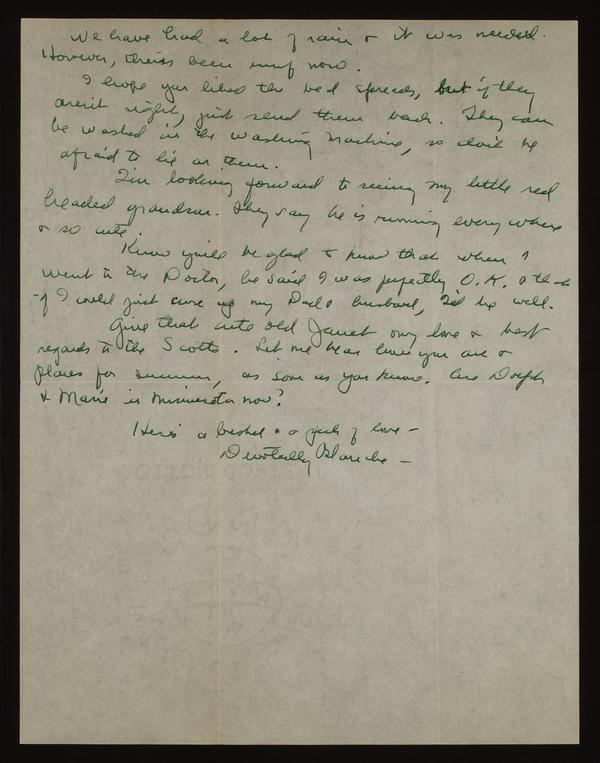 We have had a lot of rain & it was needed.
However, there's been enuf now.
I hope you liked the bed spreads, but if they
aren't right, just send them back. They can
be washed in the washing machine, so don't be
afraid to lie on them.
I'm looking forward to seeing my little red
headed grandson. They say he is running every where
& so cute.
Know you'll be glad to know that when I
went to the Doctor, he said I was perfectly O.K. & that
if I could just cure up my Dad & husband, I'd be well.
Give that cute old Janet my love & best
regards to the Scotts. Let me hear how you are &
plans for summer, as soon as you know. Are Dolph
& Marie in Minnesota now?
Here's a bushel & a peck of love –
Devotedly Blanche –